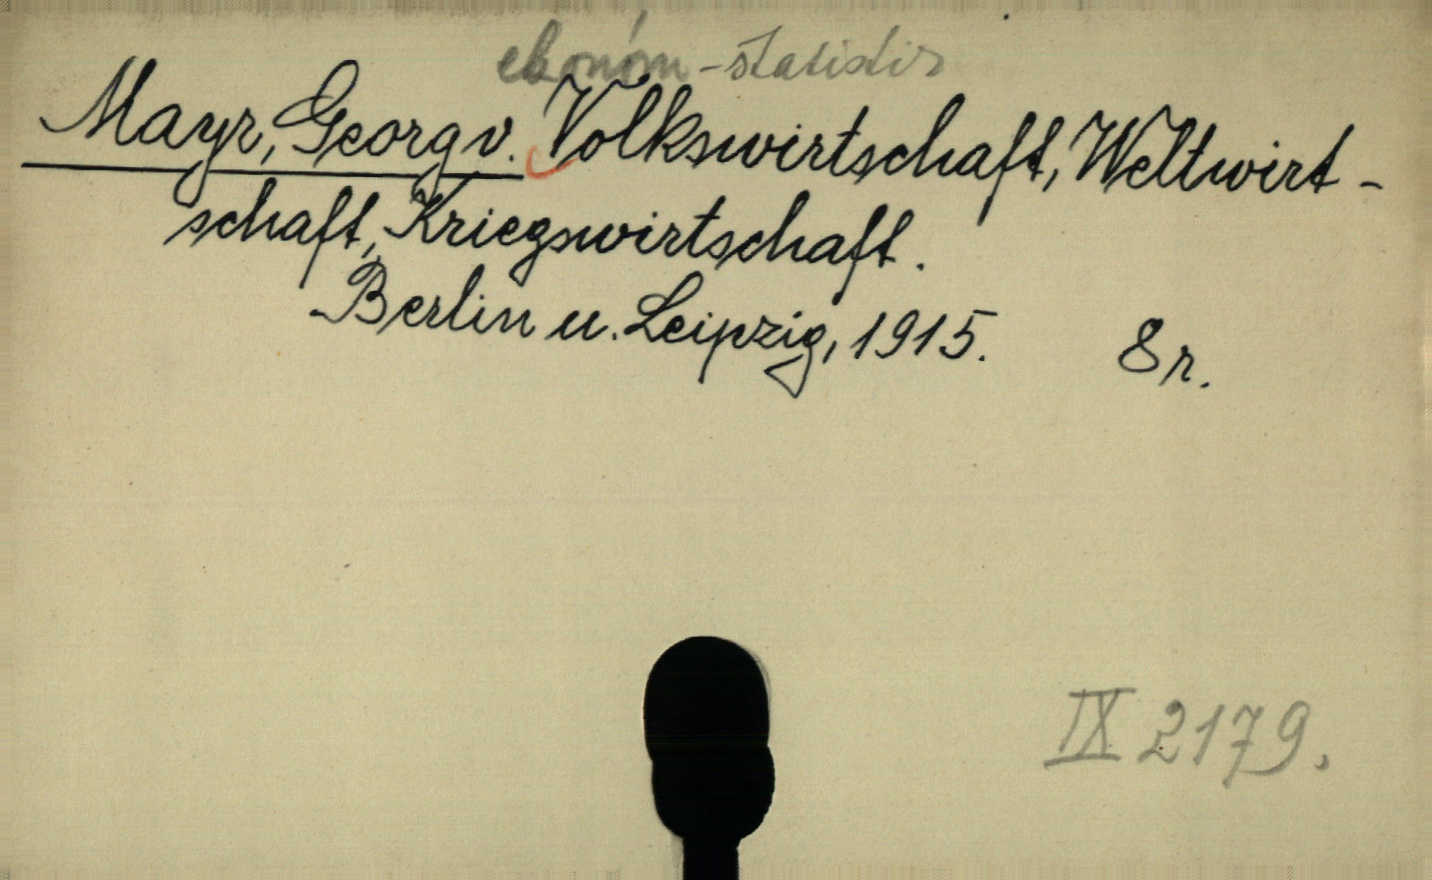 ekonóm-statistir
Mayr, Georg v. Volkswirtschaft, Weltwirt-
schaft, Kriegswirtschaft.
Berlin u. Leipzig, 1915. 8r.
IX 2179.